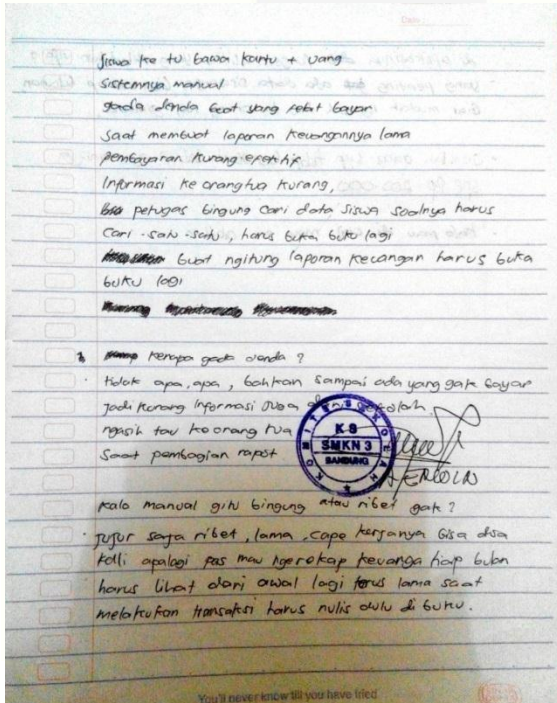 Siswa ke tu bawa kartu + uang
sistemnya manual
gada denda buat yang telat bayar
Saat membuat laporan keuangannya lama
pembayaran kurang efektif
Informasi ke orangtua kurang,
petugas bingung cari data siswa soalnya harus
cari satu-satu, harus buka buku lagi
buat ngitung laporan keuangan harus buka
buku lagi
kenapa gada denda ?
tidak apa, apa, bahkan sampai ada yang gak bayar
jadi kurang informasi juga sekolah
ngasih tau ke orang tua
saat pembagian raport
KOMITE SEKOLAH
KS
SMKN 3
BANDUNG
kalo manual gitu bingung atau ribet gak ?
jujur saja ribet, lama, cape kerjanya bisa dua
kali apalagi pas mau ngerekap keuanga tiap bulan
harus lihat dari awal lagi terus lama saat
melakukan transaksi harus nulis dulu di buku.
You'll never know till you have tried